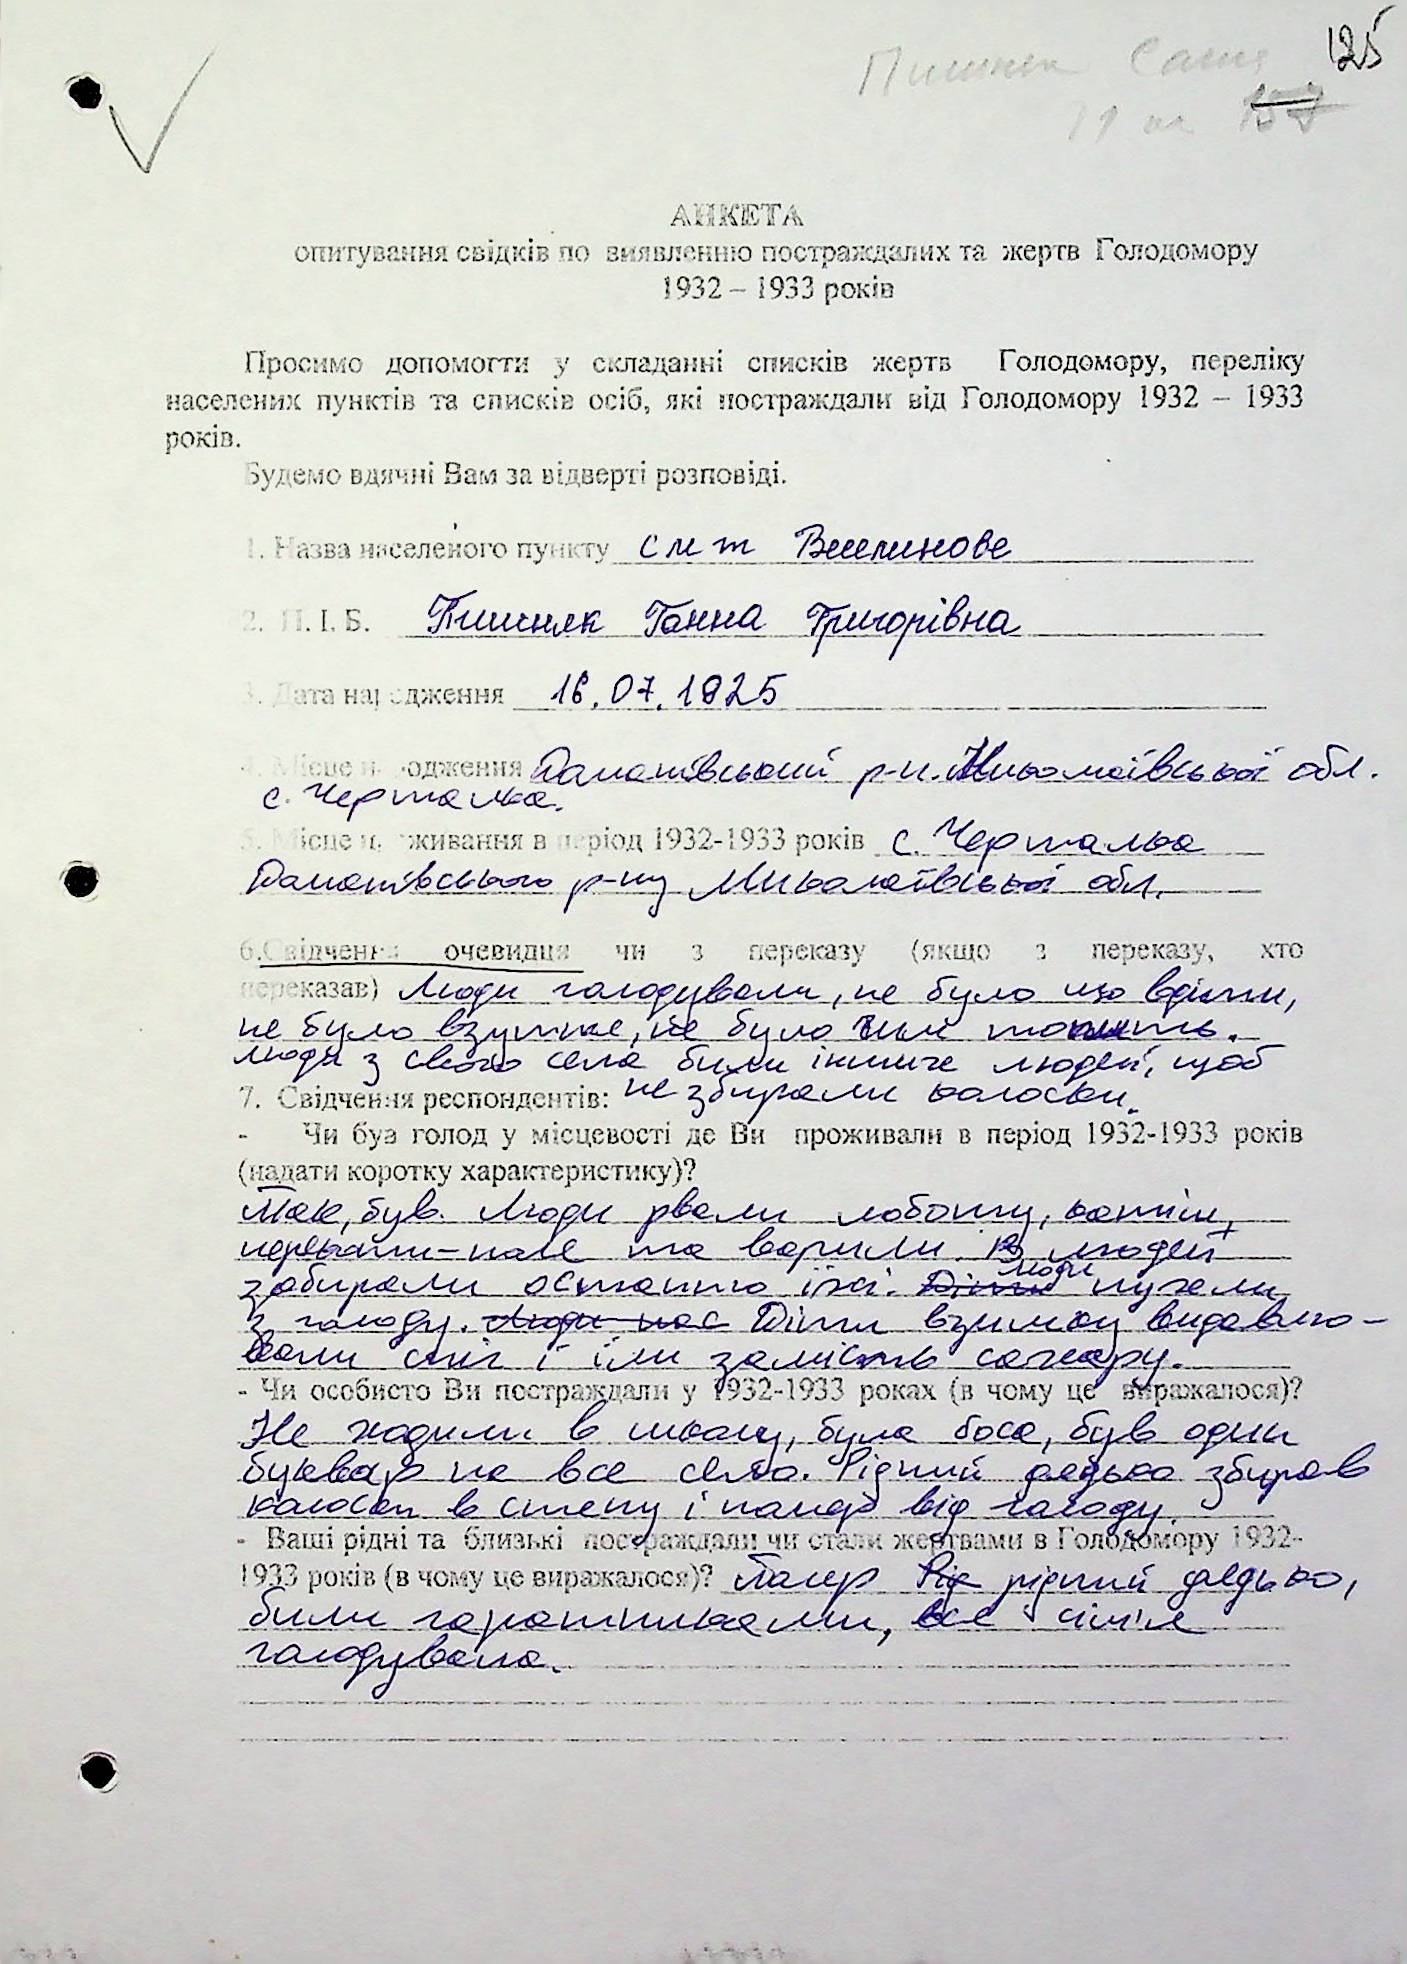 125
Пишняк Саша
157
АНКЕТА
опитування свідків по виявленню постраждалих та жертв Голодомору
1932 – 1933 років
Просимо допомогти у складанні списків жертв Голодомору, переліку
населених пунктів та списків осіб, які постраждали від Голодомору 1932 – 1933
років.
Будемо вдячні Вам за відверті розповіді.
1. Назва населеного пункту смт Веселинове
2. П. І. Б. Пишняк Ганна Григорівна
3. Дата народження 16.07.1925
4. Місце народження Доманівський р-н. Миколаївської обл.
с. Чертала.
5. Місце проживання в період 1932-1933 років с. Чертала
Доманівського р-ну Миколаївської обл.
6.Свідчення очевидця чи з переказу (якщо з переказу, хто
переказав) Люди голодували, не було що вдіти,
не було взуття, не було чим топить.
люди з свого села били інших людей, щоб
7. Свідчення респондентів: не збирали колоски.
- Чи був голод у місцевості де Ви проживали в період 1932-1933 років
(надати коротку характеристику)?
Так, був. Люди рвали лободу,
перекати-поле та варили. В людей
забирали останню їжі. Діти люди пухли
з голоду. Люди нас Діти взимку видавлю-
вали сніг і їли замість сахару.
- Чи особисто Ви постраждали у 1932-1933 роках (в чому це виражалося)?
Не ходили в школу, була боса, був один
буквар на все село. Рідний дядько збирав
колоски в степу і помер від голоду.
- Ваші рідні та близькі постраждали чи стали жертвами в Голодомору 1932-
1933 років (в чому це виражалося)? Помер Рід рідний дядько,
били гарапниками, вся сім'я
голодувала.